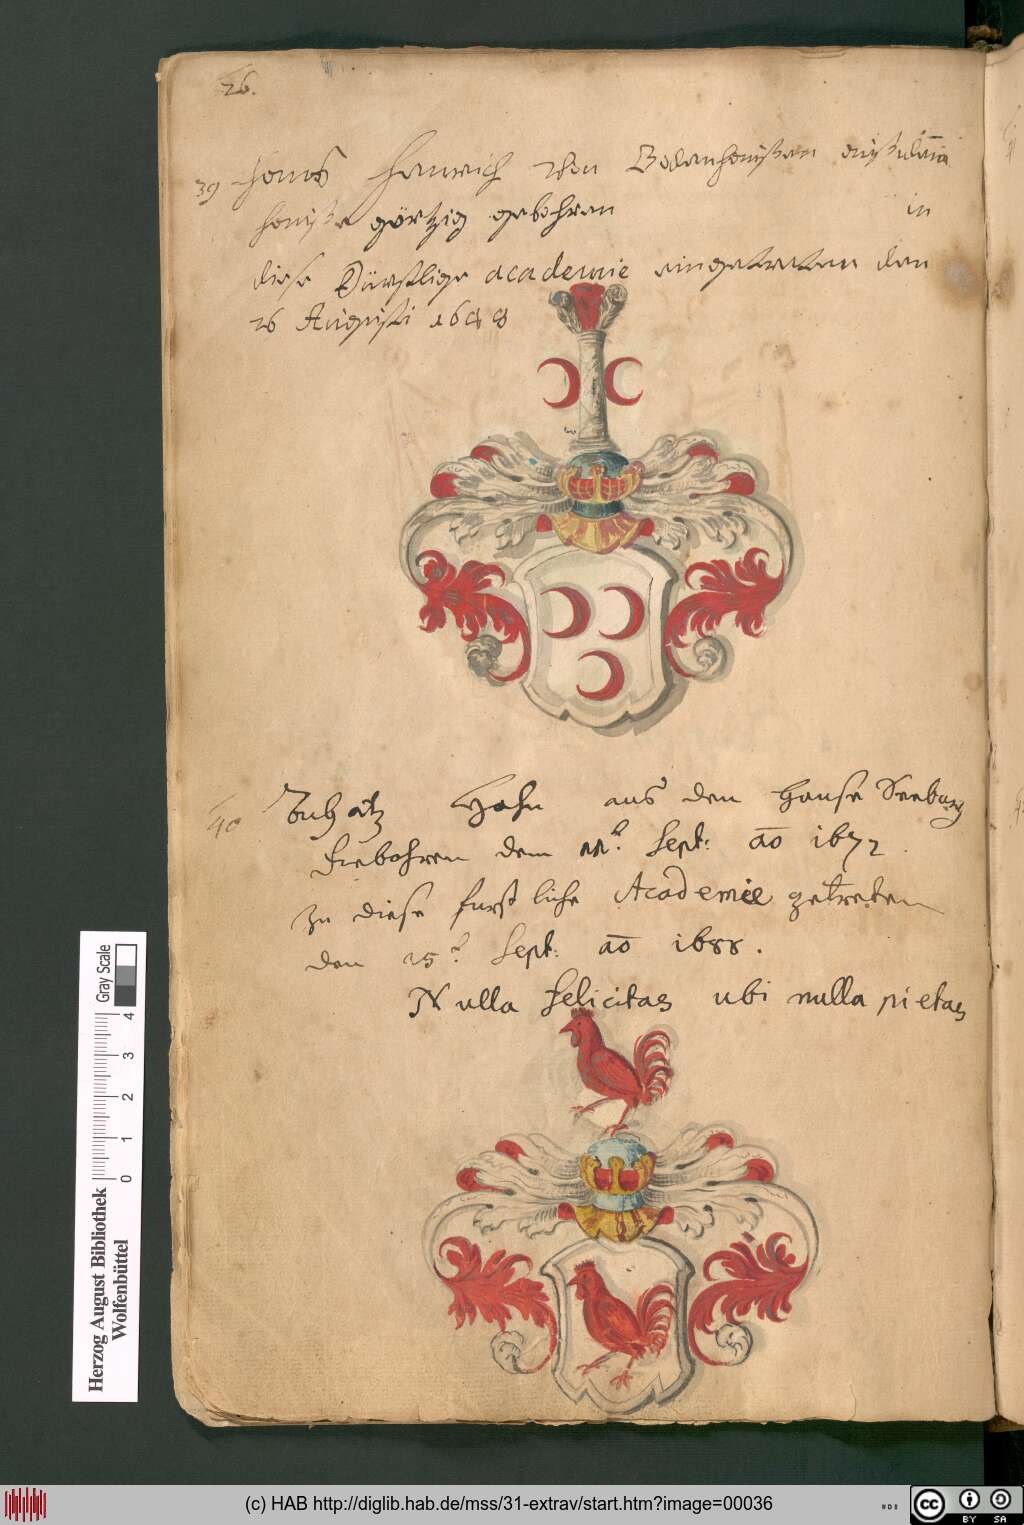 26.
39 Hans Heinrich von Bodenhausen
görtzig gebohren in
diese Fürstlige academie eingetreten den
26 Augusti 1688
40 Hahn aus dem Hause Seeburg
Gebohren dem 11. Sept: ao 1672.
Zu diese furstliche Academie getreten
den 15. Sept: ao 1688.
Nulla felicitas ubi nulla pietas
Gray Scale
0 1 2 3 4
Herzog August Bibliothek
Wolfenbüttel
(c) HAB http://diglib.hab.de/mss/31-extrav/start.htm?image=00036
cc
BY SA